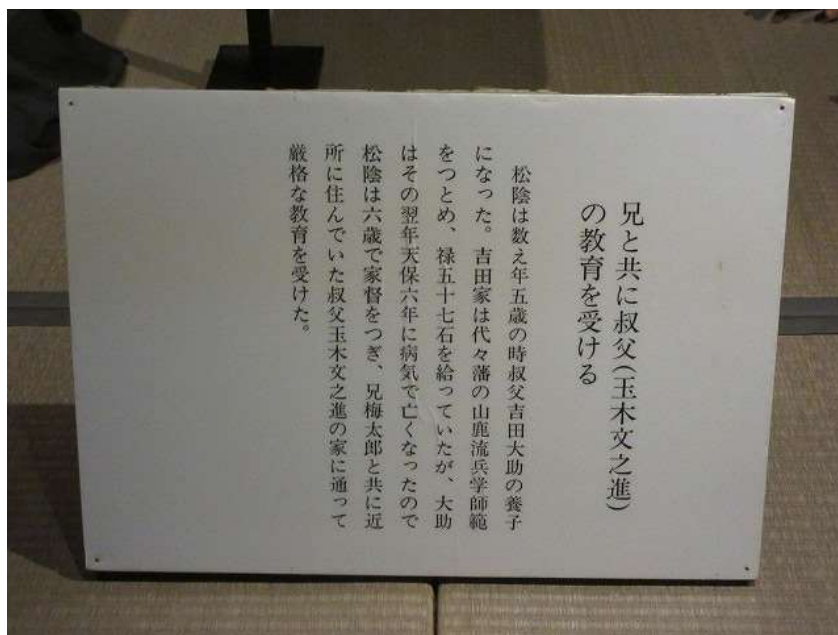 兄と共に叔父(玉木文之進)
の教育を受ける
松陰は数え年五歳の時叔父吉田大助の養子
になった。吉田家は代々藩の山鹿流兵学師範
をつとめ、禄五十七石を給っていたが、大助
はその翌年天保六年に病気で亡くなったので
松陰は六歳で家督をつぎ、兄梅太郎と共に近
所に住んでいた叔父玉木文之進の家に通って
厳格な教育を受けた。